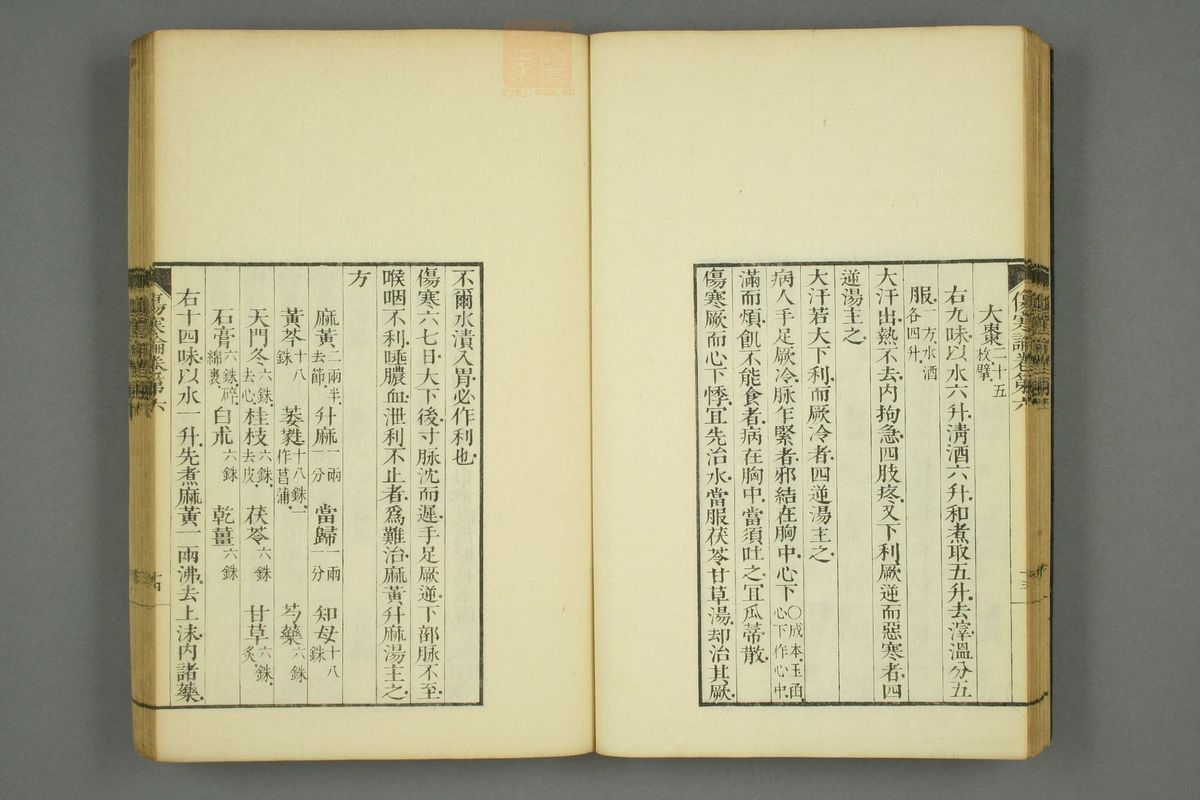 傷寒論卷第六
十三
大棗二十五枚擘
右九味以水六升清酒六升和煮取五升去滓溫分五
服一方水酒各四升
大汗出熱不去内拘急四肢疼又下利厥逆而惡寒者四
逆湯主之
大汗若大下利而厥冷者四逆湯主之
病人手足厥冷脉乍緊者邪結在胸中心下〇成本玉函心下作心中
滿而煩飢不能食者病在胸中當須吐之宜瓜蒂散
傷寒厥而心下悸宜先治水當服茯苓甘草湯却治其厥
不爾水漬入胃必作利也
傷寒六七日大下後寸脉沈而遲手足厥逆下部脉不至
喉咽不利唾膿血泄利不止者爲難治麻黃升麻湯主之
方
麻黃二兩半去節 升麻一兩一分 當歸一兩一分 知母十八銖
黃芩十八銖 萎蕤十八銖一作菖蒲 芍藥六銖
天門冬六銖去心 桂枝六銖去皮 茯苓六銖 甘草六銖炙
石膏六銖碎綿裹 白朮六銖 乾薑六銖
右十四味以水一升先煮麻黃一兩沸去上沫内諸藥
傷寒論卷第六
十四
zysj.com.cn